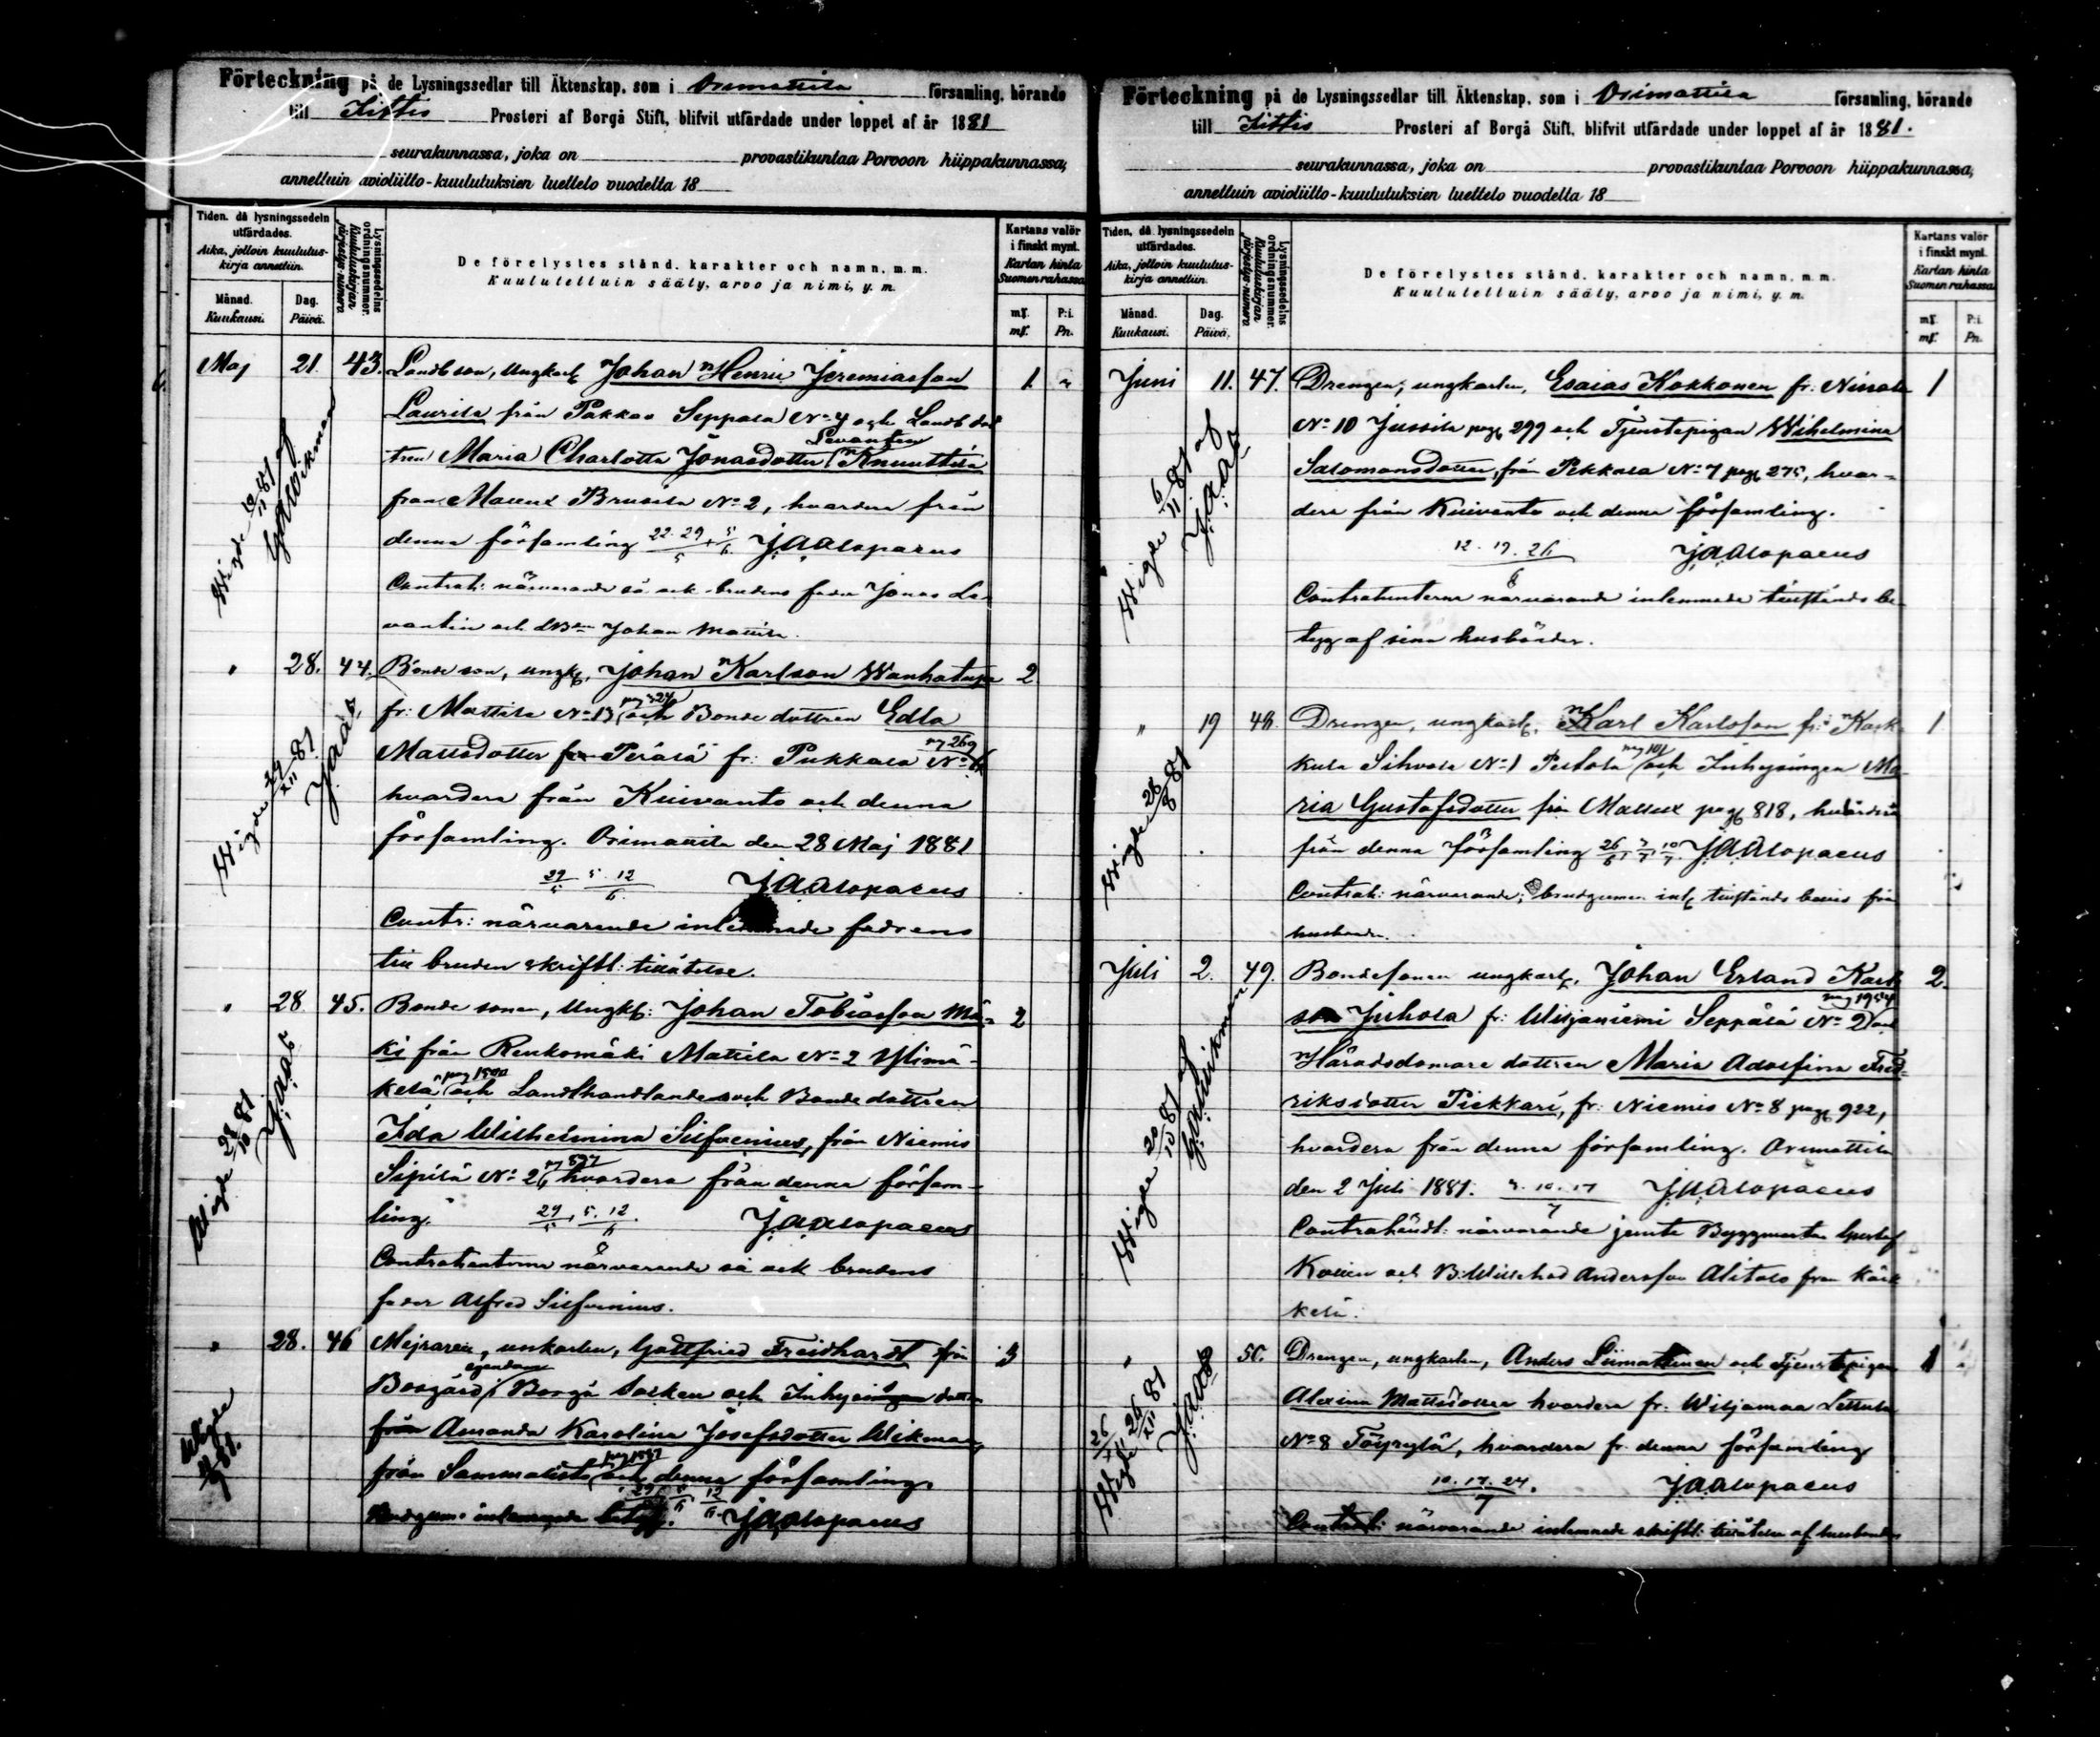 Förteckning på de Lysningssedlar till Äktenskap, som i Orimattila församling, hörande
till Iittis Prosteri af Borgå Stift, blifvit utfärdade under loppet af år 1881
seurakunnassa, joka on provastikuntaa Porvoon hiippakunnassa,
annettuin avioliitto-kuulutuksien luettelo vuodelta 18
Tiden, då lysningssedeln utfärdades.
Aika, jolloin kuulutuskirja annettiin.
Månad. Kuukausi.
Dag. Päivä.
Lysningssedelns ordningsnummer.
Kuulutuskirjan järjestys-numero
De förelystes stånd, karakter och namn, m. m.
Kuulutettuin sääty, arvo ja nimi, y. m.
Kartans valör i finskt mynt.
Kartan hinta Suomen rahassa
mf. P:i.
mf. Pn.
Maj 21. 43. Landb son, Ungkarl Johan Henric Jeremiasson 1
Laurila från Pakkas Seppälä No 4 och Landb dot
tren Maria Charlotta Jonasdotter Knuuttila
Levanten
från Mallux Brusila No 2, hvardera från
denna församling 22. 29/5 5/6 JAAlopaeus
Contrah: närvarande så ock brudens fader Jonas Le
vantin och Johan Mattila.
Wigde 81 af GAWikman
" 28. 44. Bonde son, ungk. Johan Karlson Wanhatupa 2
fr. Mattila No 13 och Bonde dottren Edla
Mattsdotter Perälä fr. Pukkala No
pag 269
hvardera från Kuivanto och denna
församling. Orimattila den 28 Maj 1881
29/5 5. 12/6 JAAlopaeus
Contr: närvarande inlemnade fadrens
till bruden skriftl: tillåtelse.
Wigde 81 JAAls
" 28 45. Bonde sonen, Ungk: Johan Tobiasson Mä- 2
ki från Renkomäki Mattila No 2 Ylimä-
kelä och Landthandlande och Bonde dottren
Ida Wilhelmina Silfvenius, från Niemis
Sipilä No 26 hvardera från denna försam-
ling. 29/5, 5. 12/6. JAAlopaeus
Contrahenterna närvarande så ock brudens
fader Alfred Silfvenius.
Wigde 81 JAAls
" 28. 46 Mejraren, unkarlen, Gottfried Freidhardt från 3
Bosgård egendom Borgå Socken och Inhysing dotter
från Amanda Karolina Josefsdotter Wikman,
från Sammalisto och denna församling.
Brudgum: inlemnade betyg. JAAlopaeus
Wigde 81.
Förteckning på de Lysningssedlar till Äktenskap, som i Orimattila församling, hörande
till Iittis Prosteri af Borgå Stift, blifvit utfärdade under loppet af år 1881.
seurakunnassa, joka on provastikuntaa Porvoon hiippakunnassa,
annettuin avioliitto-kuulutuksien luettelo vuodelta 18
Tiden, då lysningssedeln utfärdades.
Aika, jolloin kuulutuskirja annettiin.
Månad. Kuukausi.
Dag. Päivä.
Lysningssedelns ordningsnummer.
Kuulutuskirjan järjestys-numero
De förelystes stånd, karakter och namn, m. m.
Kuulutettuin sääty, arvo ja nimi, y. m.
Kartans valör i finskt mynt.
Kartan hinta Suomen rahassa
mf. P:i.
mf. Pn.
Juni 11. 47. Drengen, ungkarlen, Esaias Kokkonen fr. 1
No 10 Jussila pag 299 och Tjenstepigan Wilhelmina
Salomonsdotter, från Pekkala No 7 pag 275, hvar-
dera från Kuivanto och denna församling.
12. 19. 26/6 JAAlopaeus
Contrahenterna närvarande inlemnade tillstånds be
tyg af sina husbönder.
Wigde 6/11 81 af JAAls
" 19 48. Drengen, ungkarl. Karl Karlsson fr. Kark 1
kula Sihvola No 1 Peltola och Inhysingen Ma
ria Gustafsdotter från Mallux pag 818, hvardera
från denna församling 26/6, 3/7, 10/7. JAAlopaeus
Contrah: närvarande; brudgumen inl. tillstånds bevis från
husbonde.
Wigde 81
Juli 2. 49. Bondesonen ungkarl. Johan Erland Karls 2.
son Juhola fr. Wiljaniemi Seppälä No 2 och
Häradsdomare dottren Maria Adolfina Fred-
riksdotter Piekkari, fr. Niemis No 8 pag 922,
hvardera från denna församling. Orimattila
den 2 Juli 1881. 3. 10. 17/7 JAAlopaeus
Contrahendt: närvarande jemte Byggmästar Gustaf
och B: Willehad Andersson Alitalo från Kärk
kelä.
Wigde 20/10 81 af GAWikman
" 50. Drengen, ungkarlen, Anders Liimattinen och Tjenstepigan 1
Alexina Mattsdotter hvardera fr. Wiljamaa Lettula
No 8 Töyrylä, hvardera fr. denna församling
10. 17. 24/7. JAAlopaeus
Contrah: närvarande inlemnade skriftl: tillåtelse af husbonden
Wigde 26 81 JAAls